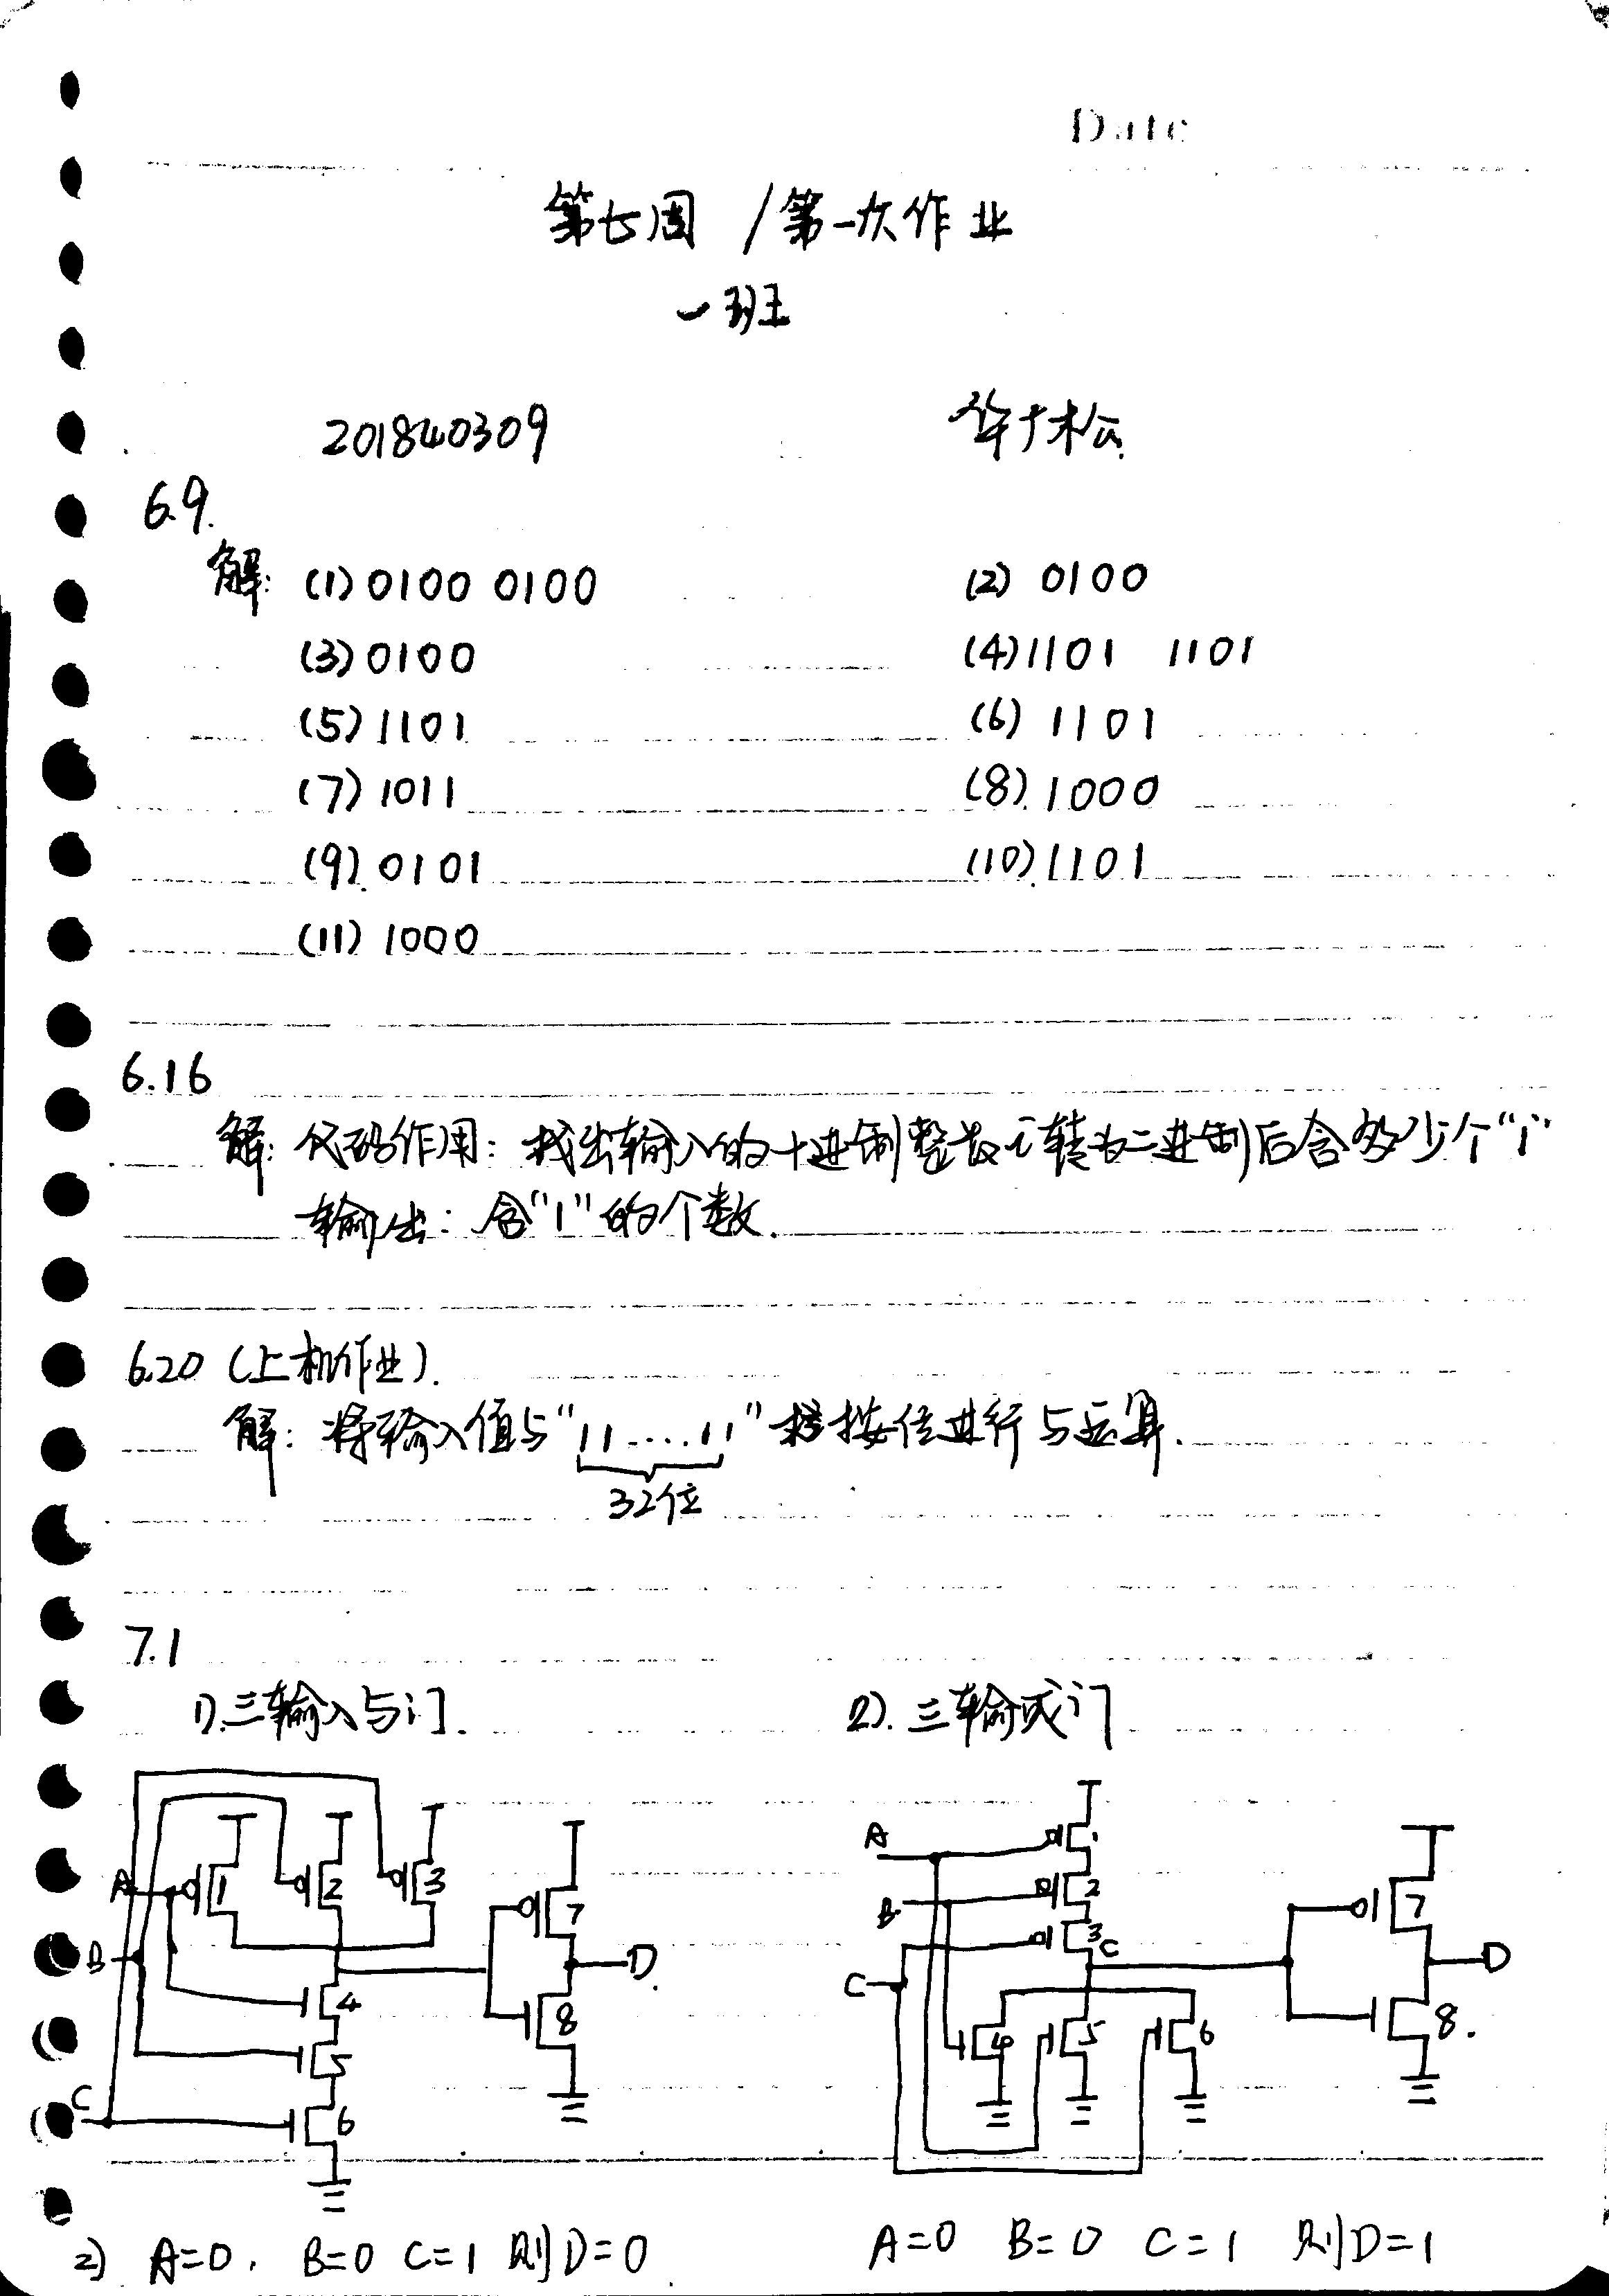 Date
第七周 / 第一次作业
一班
201840309
6.9.
解: (1) 0100 0100 (2) 0100
(3) 0100 (4) 1101 1101
(5) 1101 (6) 1101
(7) 1011 (8). 1000
(9). 0101 (10) 1101
(11) 1000
6.16
解: 代码作用: 找出输入的十进制整数i转为二进制后含多少个"1"
输出: 含"1"的个数.
6.20 (上机作业).
解: 将输入值与"11....11" 按位进行与运算.
32位
7.1
1). 三输入与门. 2). 三输或门
A 1 2 3 7 B D 4 8 5 C 6
A 1 2 B 3 C 7 C D 4 5 6 8.
2) A=0, B=0 C=1 则D=0 A=0 B=0 C=1 则D=1